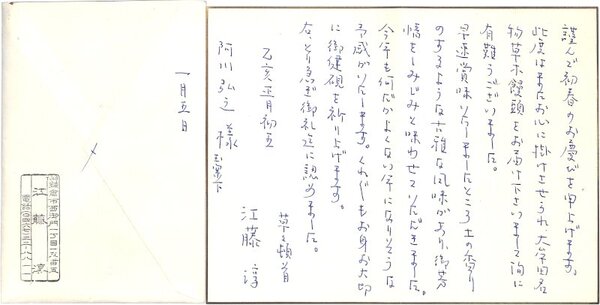 謹んで初春のお慶びを申上げます。
此度はまたお心に掛けさせられ大牟田名
物草木饅頭をお届け下さいまして洵に
有難うございました。
早速賞味いたしましたところ土の香り
のするような古雅な風味があり、御芳
情をしみじみと味わせていただきました。
今年も何だかよくない年になりそうな
予感がいたします。くれぐれもお身お大切
に御健硯を祈り上げます。
右、とり急ぎ御礼迄に認めました。
草々頓首
乙亥正月初五
江藤淳
阿川弘之様
玉案下
一月五日
江藤淳